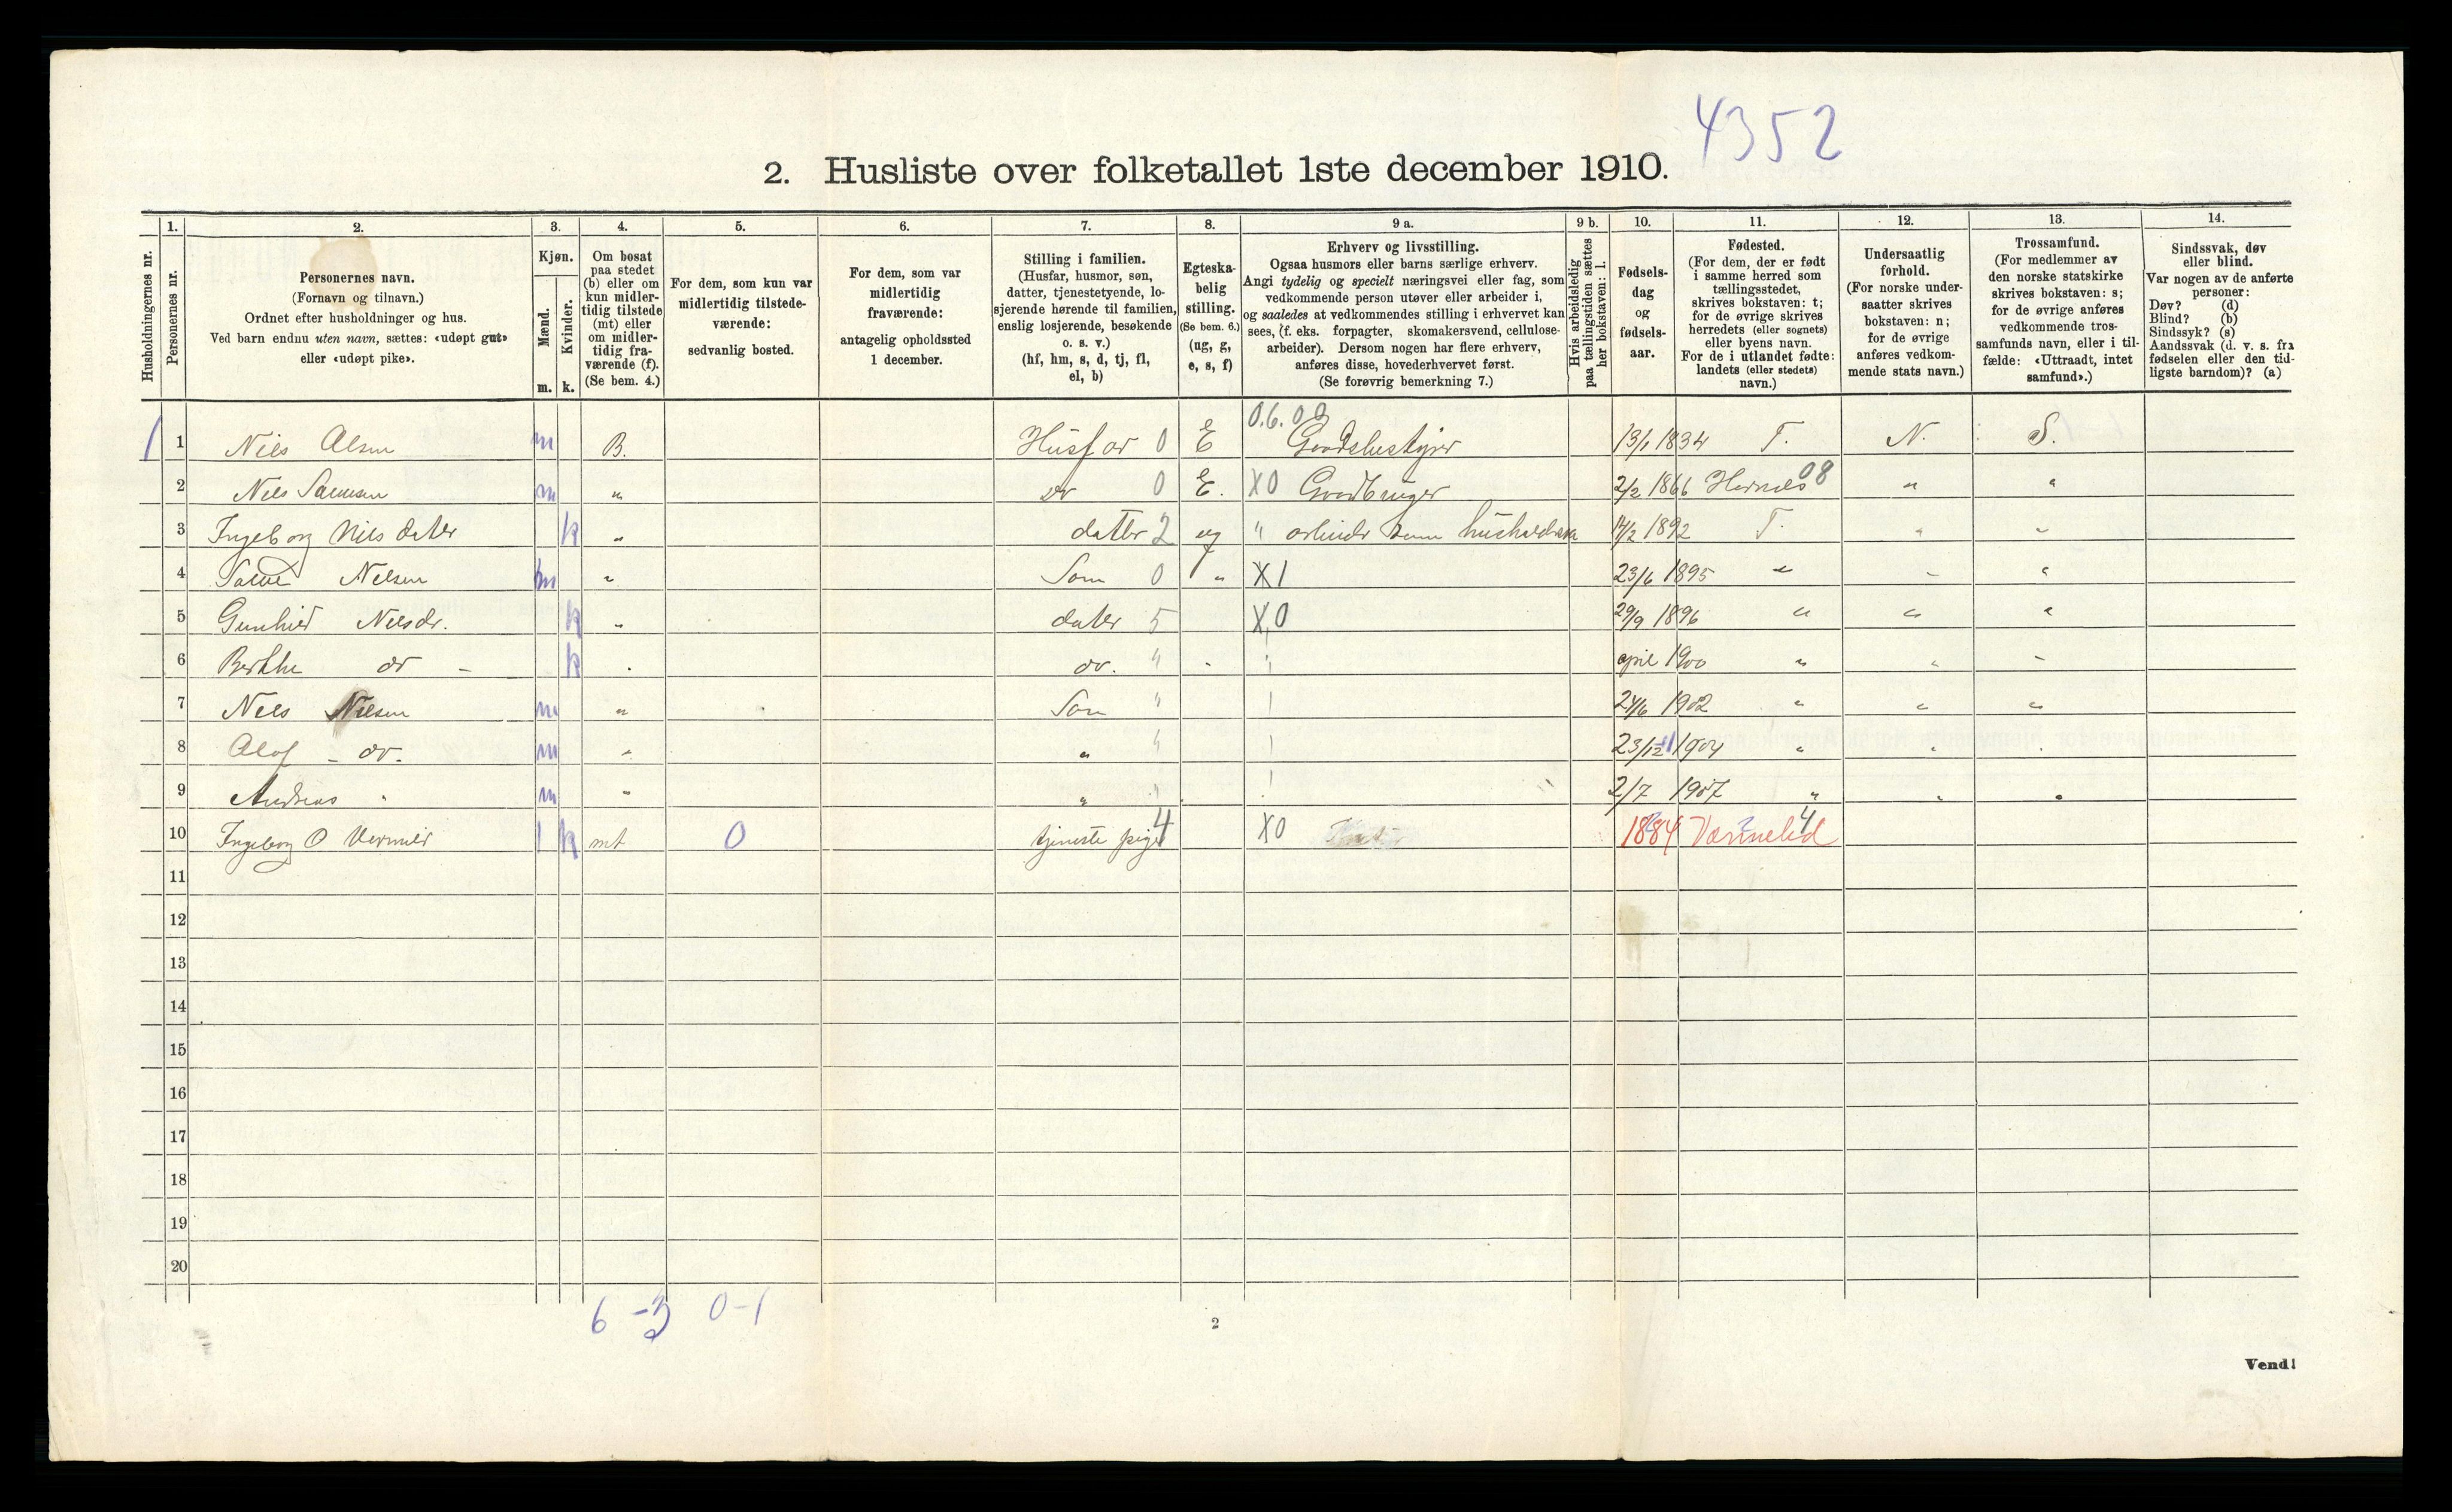 4352
2. Husliste over folketallet 1ste december 1910.
Husholdningernes nr.
1.
Personernes nr.
2.
Personernes navn.
(Fornavn og tilnavn.)
Ordnet efter husholdninger og hus.
Ved barn endnu uten navn, sættes: «udøpt gut»
eller «udøpt pike».
3.
Kjøn.
Mænd.
m.
Kvinder.
k.
4.
Om bosat
paa stedet
(b) eller om
kun midler-
tidig tilstede
(mt) eller
om midler-
tidig fra-
værende (f).
(Se bem. 4.)
5.
For dem, som kun var
midlertidig tilstede-
værende:
sedvanlig bosted.
6.
For dem, som var
midlertidig
fraværende:
antagelig opholdssted
1 december.
7.
Stilling i familien.
(Husfar, husmor, søn,
datter, tjenestetyende, lo-
sjerende hørende til familien,
enslig losjerende, besøkende
o. s. v.)
(hf, hm, s, d, tj, fl,
el, b)
8.
Egteska-
belig
stilling.
(Se bem. 6.)
(ug, g,
e, s, f)
9 a.
Erhverv og livsstilling.
Ogsaa husmors eller barns særlige erhverv.
Angi tydelig og specielt næringsvei eller fag, som
vedkommende person utøver eller arbeider i,
og saaledes at vedkommendes stilling i erhvervet kan
sees, (f. eks. forpagter, skomakersvend, cellulose-
arbeider). Dersom nogen har flere erhverv,
anføres disse, hovederhvervet først.
(Se forøvrig bemerkning 7.)
9 b.
Hvis arbeidsledig
paa tællingstiden sættes
her bokstaven: l.
10.
Fødsels-
dag
og
fødsels-
aar.
11.
Fødested.
(For dem, der er født
i samme herred som
tællingsstedet,
skrives bokstaven: t;
for de øvrige skrives
herredets (eller sognets)
eller byens navn.
For de i utlandet fødte:
landets (eller stedets)
navn.)
12.
Undersaatlig
forhold.
(For norske under-
saatter skrives
bokstaven: n;
for de øvrige
anføres vedkom-
mende stats navn.)
13.
Trossamfund.
(For medlemmer av
den norske statskirke
skrives bokstaven: s;
for de øvrige anføres
vedkommende tros-
samfunds navn, eller i til-
fælde: «Uttraadt, intet
samfund».)
14.
Sindssvak, døv
eller blind.
Var nogen av de anførte
personer:
Døv? (d)
Blind? (b)
Sindssyk? (s)
Aandssvak (d. v. s. fra
fødselen eller den tid-
ligste barndom)? (a)
1 1 Niels Olsen m B. Husfar 0 E 0.6.00 13/1 1834 T. N. S.
2 Nils m " 0 E. X0 Gardbruger 2/2 1866 08 " "
3 Ingeborg Nils dater k " datter 2 ug " som 14/2 1892 T. " "
4 Nilsen m " Søn 0 " X1 23/6 1895 " " "
5 Gunhild Nilsdr. k " dater 5 X0 29/9 1896 " " "
6 Berthe do - k " do. " " april 1900 " " "
7 Nils Nilsen m " Søn " 24/6 1902 " " "
8 Olof - do. m " " " 23/12 1904 " " "
9 Andreas " m " " " 2/7 1907 " " "
10 Ingeborg O k mt 0 tjeneste pige 4 X0 1884 4
11
12
13
14
15
16
17
18
19
20
6 -3 0-1
2
Vend!